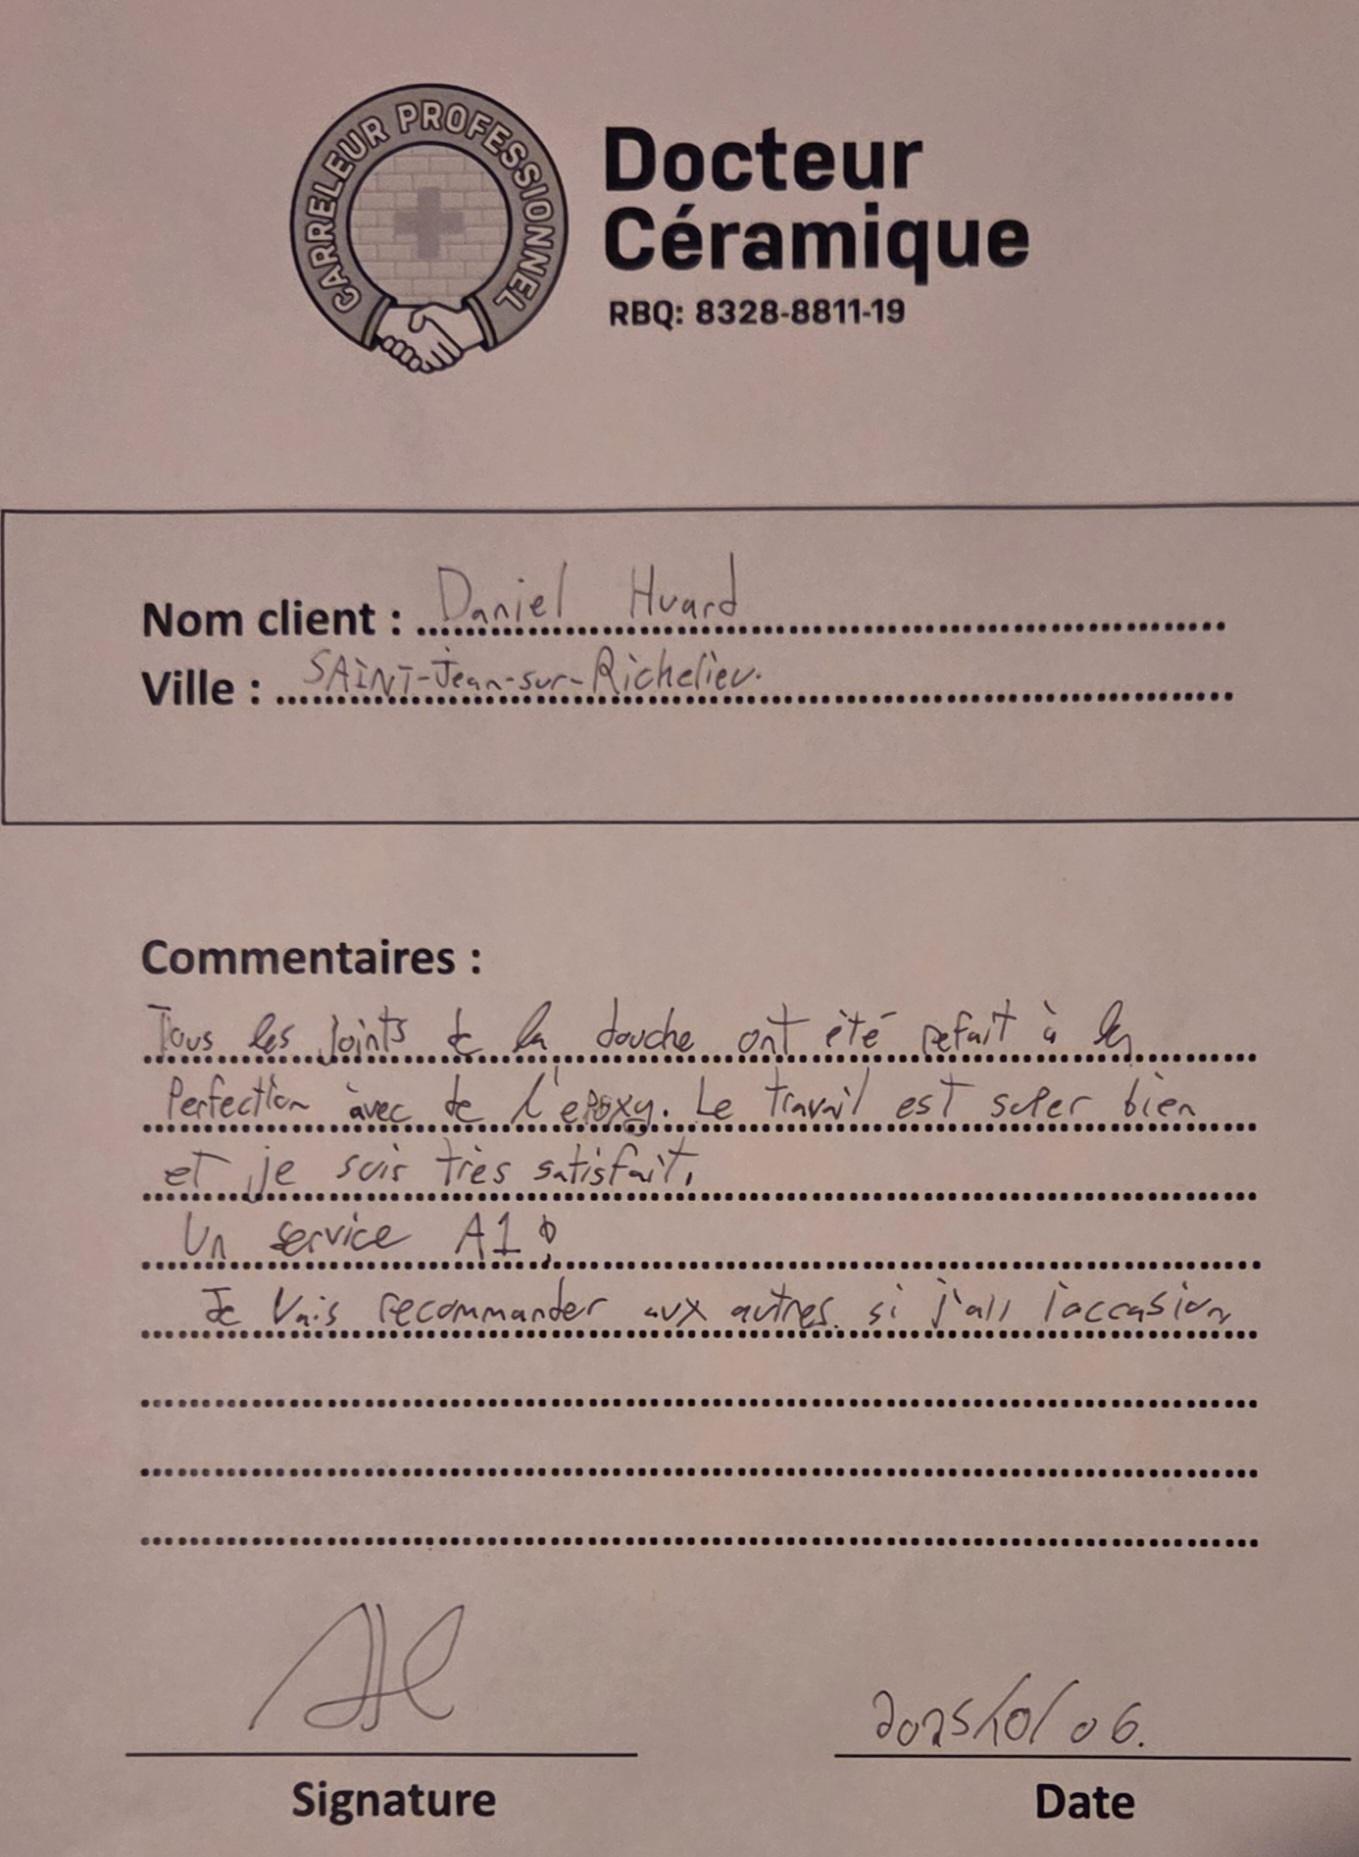 CARRELEUR PROFESSIONNEL
Docteur
Céramique
RBQ: 8328-8811-19
Nom client : Daniel Huard
Ville : SAINT-Jean-sur-Richelieu.
Commentaires :
Tous les joints de la douche ont été refait à la
Perfection avec de l'epoxy. Le travail est super bien
et je suis très satisfait.
Un service A1!
Je vais recommander aux autres si j'ai l'occasion
2025/10/06.
Signature
Date